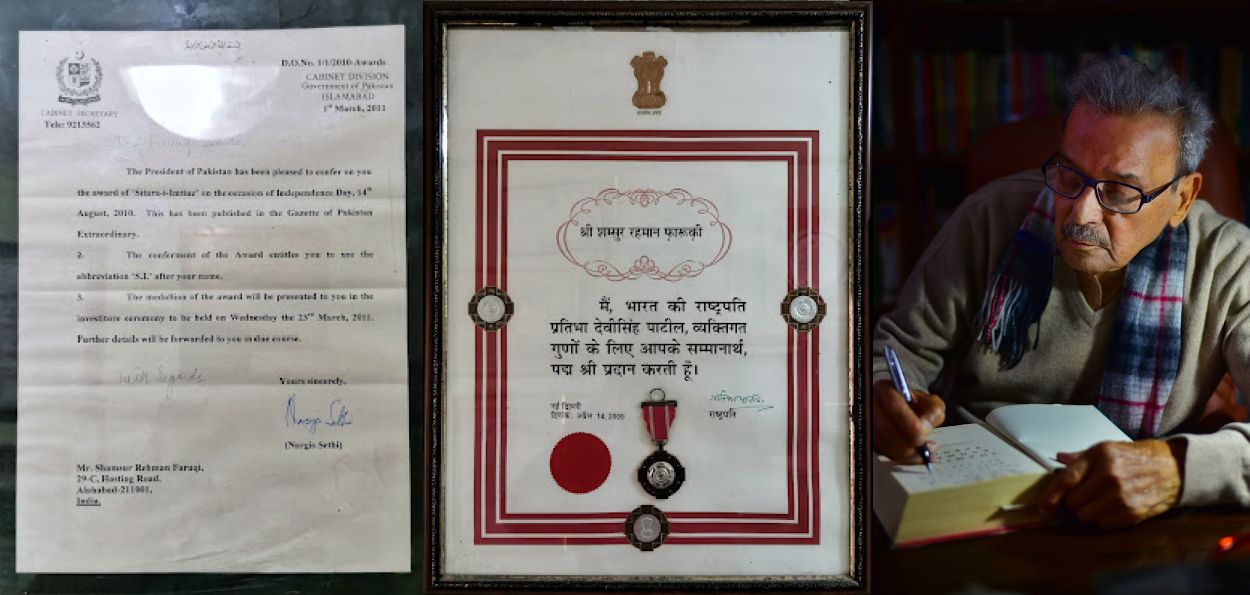 D.O.No. 1/1/2010-Awards
CABINET DIVISION
Government of Pakistan
ISLAMABAD
1st March, 2011
CABINET SECRETARY
Tele: 9213562
The President of Pakistan has been pleased to confer on you
the award of 'Sitara-i-Imtiaz' on the occasion of Independence Day, 14th
August, 2010. This has been published in the Gazette of Pakistan
Extraordinary.
2. The conferment of the Award entitles you to use the
abbreviation 'S.I.' after your name.
3. The medallion of the award will be presented to you in the
investiture ceremony to be held on Wednesday the 23rd March, 2011.
Further details will be forwarded to you in due course.
with regards
Yours sincerely,
(Nargis Sethi)
Mr. Shamsur Rehman Faruqi,
29-C, Hasting Road,
Alahabad-211001,
India.
श्री शम्सुर रहमान फ़ारूक़ी
मैं, भारत की राष्ट्रपति
प्रतिभा देवीसिंह पाटील, व्यक्तिगत
गुणों के लिए आपके सम्मानार्थ,
पद्म श्री प्रदान करती हूँ।
नई दिल्ली
दिनांक: अप्रैल 14, 2009
राष्ट्रपति